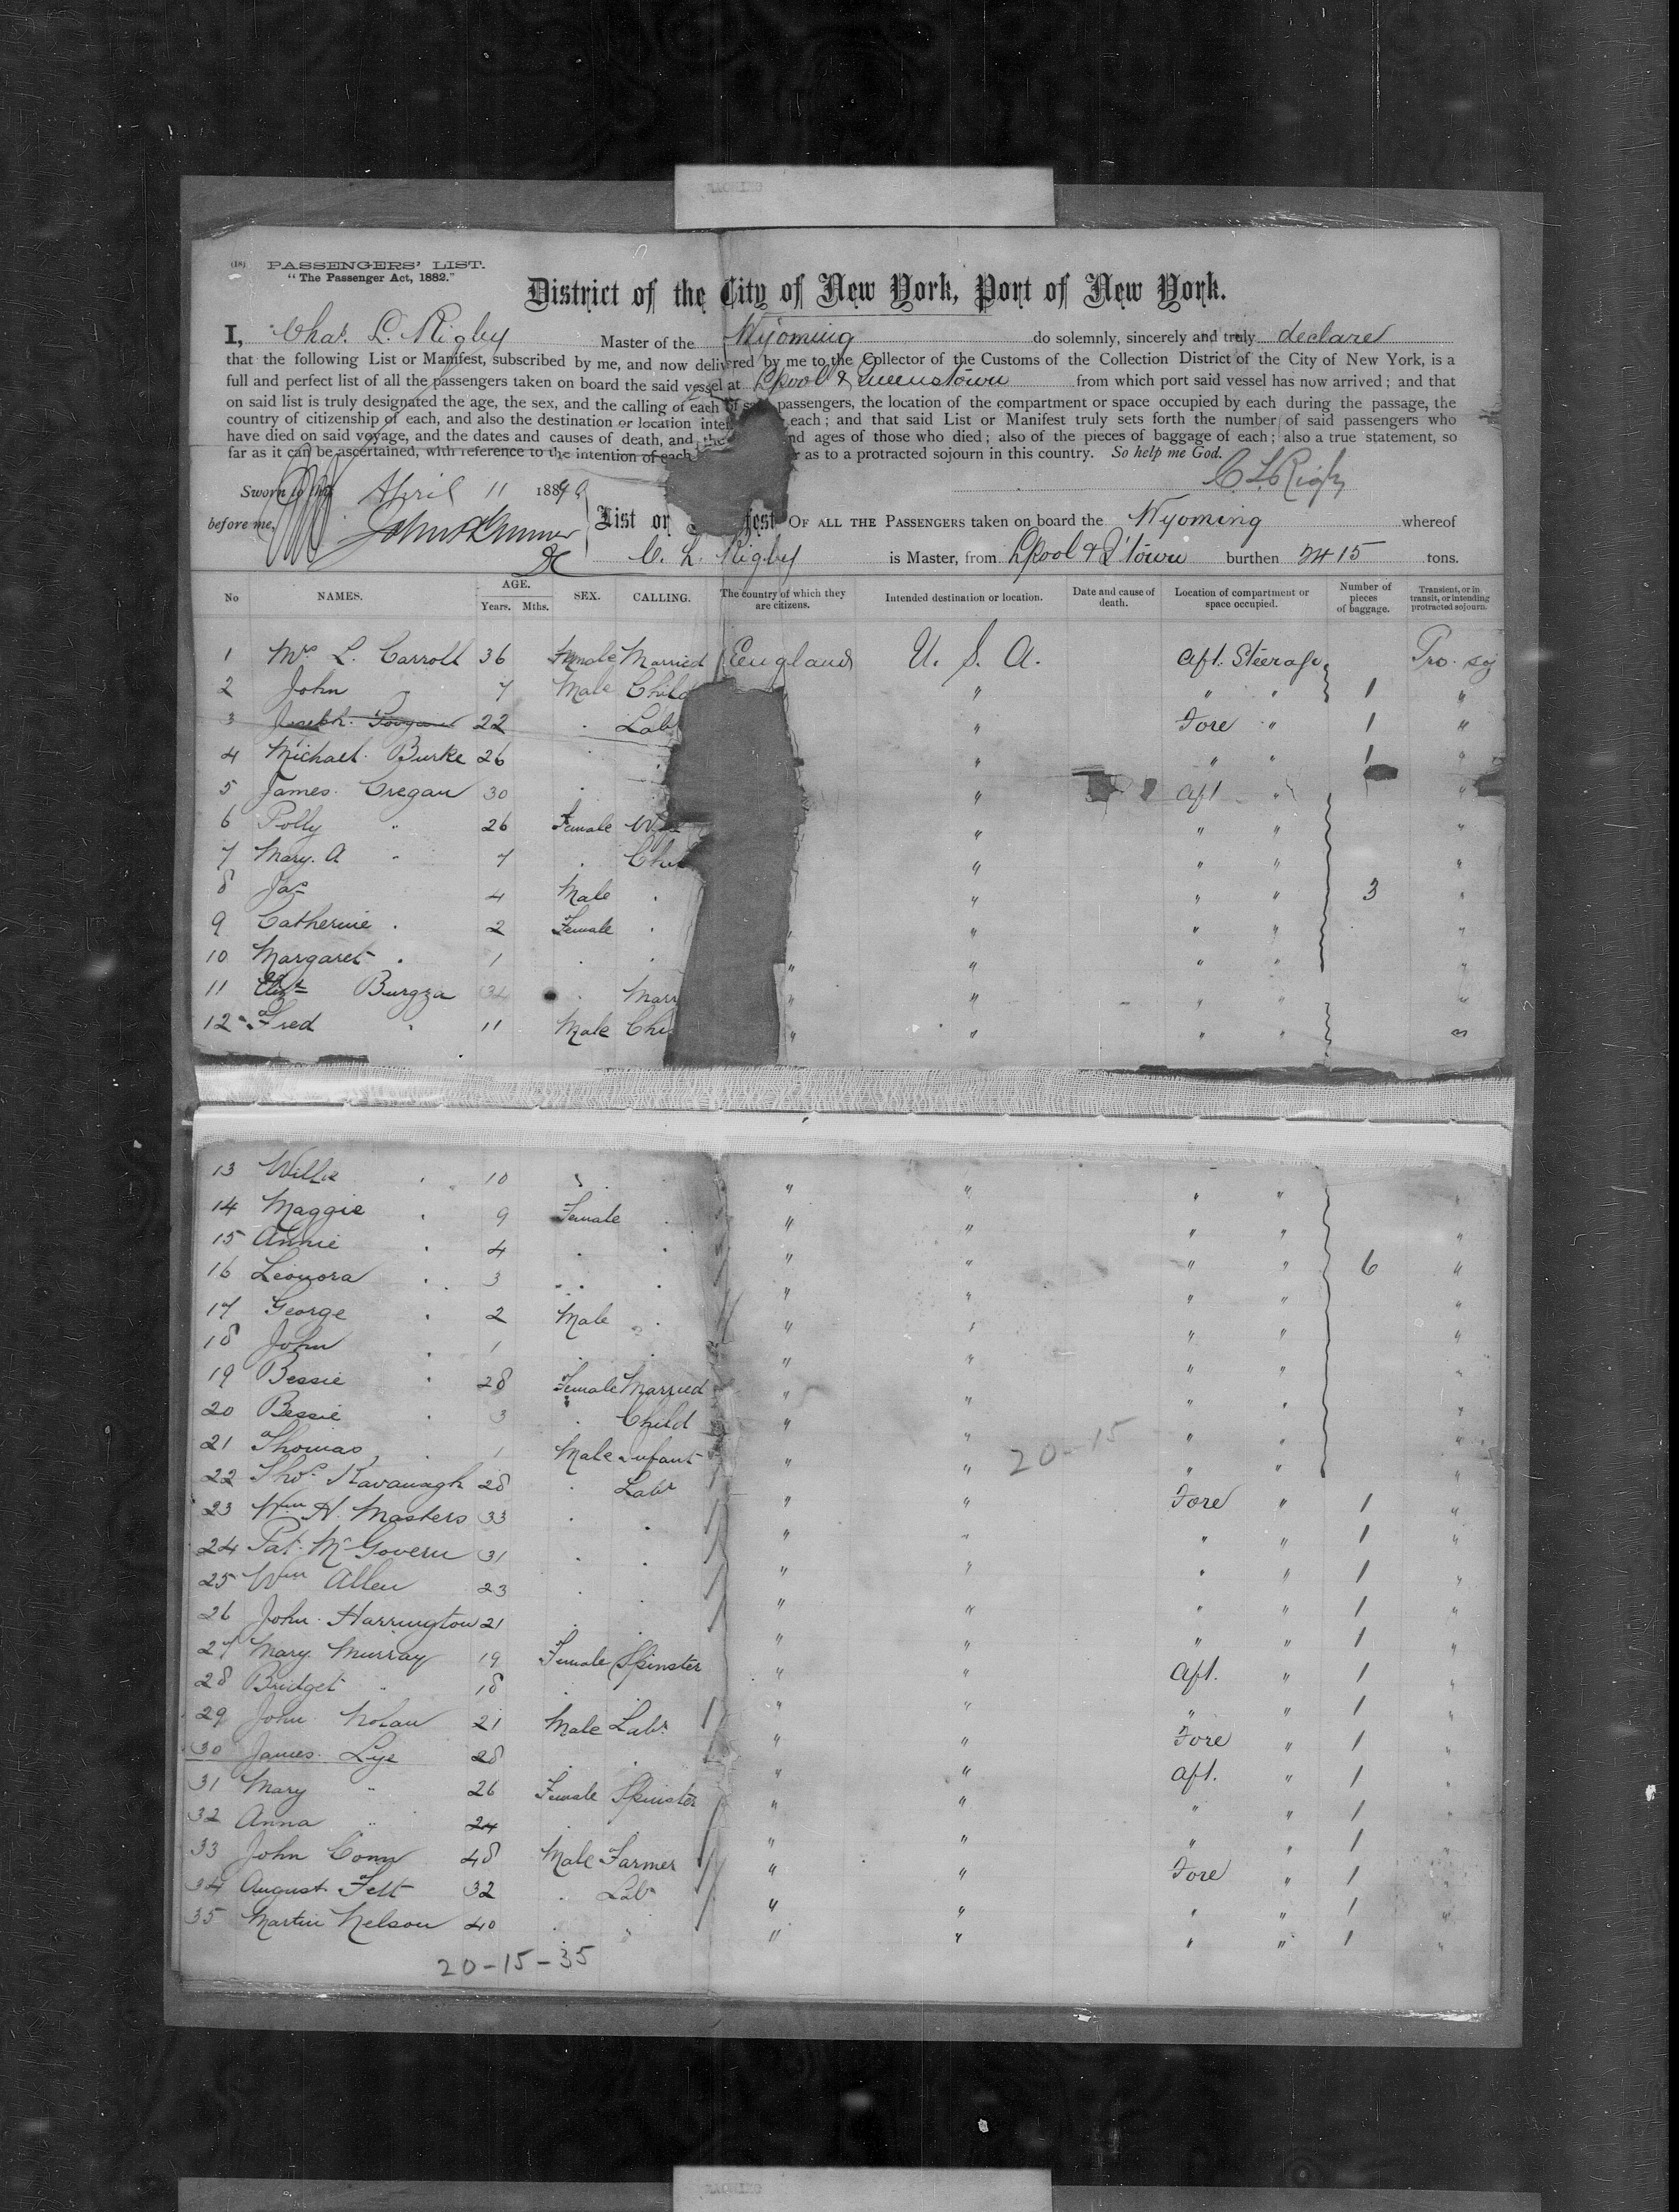 (18) PASSENGERS' LIST.
"The Passenger Act, 1882."
District of the City of New York, Port of New York.
I, Chas. L. Rigby Master of the Wyoming do solemnly, sincerely and truly declare
that the following List or Manifest, subscribed by me, and now delivered by me to the Collector of the Customs of the Collection District of the City of New York, is a
full and perfect list of all the passengers taken on board the said vessel at L'pool & Queenstown from which port said vessel has now arrived; and that
on said list is truly designated the age, the sex, and the calling of each of said passengers, the location of the compartment or space occupied by each during the passage, the
country of citizenship of each, and also the destination or location inten each; and that said List or Manifest truly sets forth the number of said passengers who
have died on said voyage, and the dates and causes of death, and the nd ages of those who died; also of the pieces of baggage of each; also a true statement, so
far as it can be ascertained, with reference to the intention of each as to a protracted sojourn in this country. So help me God.
Sworn to this April 11 188 C L Rigby
before me,
List or fest OF ALL THE PASSENGERS taken on board the Wyoming whereof
C. L. Rigby is Master, from L'pool & Q'town burthen tons.
No NAMES. AGE. Years. Mths. SEX. CALLING. The country of which they are citizens. Intended destination or location. Date and cause of death. Location of compartment or space occupied. Number of pieces of baggage. Transient, or in transit, or intending protracted sojourn.
1 Mrs L. Carroll 36 Female Married England U. S. A. Aft. Steerage Pro. soj
2 John " 7 Male Child " " " 1 "
3 Joseph 22 . Lab " Fore " 1 "
4 Michael Burke 26 . . " " " 1 "
5 James Cregan 30 . " Aft " "
6 Polly " 26 Female W " " " "
7 Mary. A " 7 . Chil " " " "
8 Jas 4 Male . " " " 3 "
9 Catherine . 2 Female . " " " "
10 Margaret . 1 . . " " " " "
11 Burgza 34 . Marr " " " " "
12 Fred . 11 Male Chi " " " " "
13 Willie . 10 " " " " "
14 Maggie . 9 Female . " " " " "
15 Annie . 4 . . " " " " "
16 Leonora . 3 . . " " " " 6 "
17 George . 2 Male . " " " " "
18 John . 1 . . " " " " "
19 Bessie . 28 Female Married " " " " "
20 Bessie . 3 . Child " " " " "
21 Thomas . 1 Male Infant " " 20-15 " " "
22 Thos Kavanagh 28 . Labr " " Fore " 1 "
23 Wm H. Masters 33 . . " " " " 1 "
24 Pat. McGovern 31 . . " " " " 1 "
25 Wm Allen 23 . . " " " " 1 "
26 John Harrington 21 . . " " " " 1 "
27 Mary Murray 19 Female Spinster " " Aft. " 1 "
28 Bridget " 18 . . " " " " 1 "
29 John Nolan 21 Male Labr " " Fore " 1 "
30 James Lye 28 . . " " Aft. " 1 "
31 Mary " 26 Female Spinster " " " " 1 "
32 Anna " 24 . . " " " " 1 "
33 John Conn 48 Male Farmer " " Fore " 1 "
34 August Felt 32 . Labr " " " " 1 "
35 Martin Nelson 40 . " " " " " 1 "
20-15-35